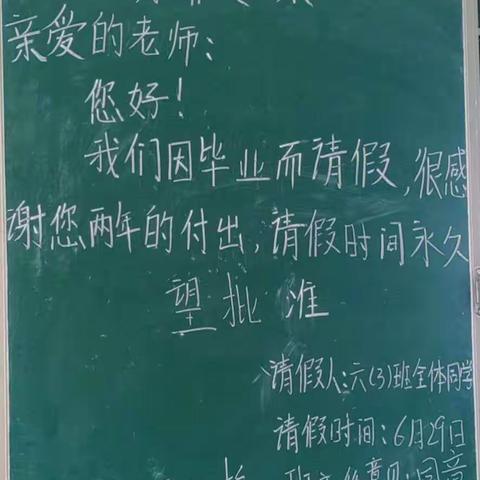 亲爱的老师：
您好！
我们因毕业而请假，很感
谢您两年的付出，请假时间永久
望批准
请假人：六（3）班全体同学
请假时间：6月29日
意见：同意